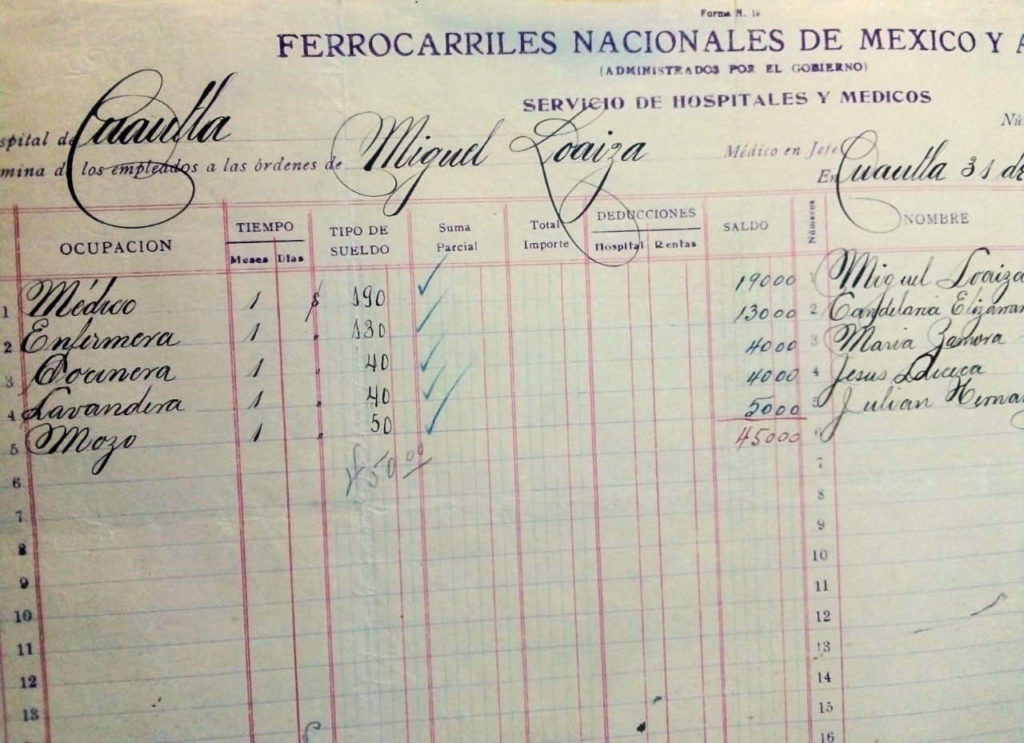 Forma N. 1
FERROCARRILES NACIONALES DE MEXICO Y A
(ADMINISTRADOS POR EL GOBIERNO)
SERVICIO DE HOSPITALES Y MEDICOS
Nú
spital de Cuautla
mina de los empleados a las órdenes de Miguel Loaiza Médico en Jefe
En Cuautla 31 de
OCUPACION TIEMPO TIPO DE SUELDO Suma Parcial Total Importe DEDUCCIONES SALDO Números NOMBRE
Meses Dias Hospital Rentas
1 Médico 1 $ 190 19000 1 Miguel Loaiza
2 Enfermera 1 " 130 13000 2 Candelaria
3 Cocinera 1 " 40 4000 3 Maria Zamora
4 Lavandera 1 " 40 4000 4 Jesus
5 Mozo 1 " 50 5000 5 Julian Herna
450.00 45000 6
6 7
7 8
8 9
9 10
10 11
11 12
12 13
13 14
15
16